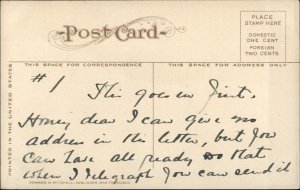 Post Card
PLACE
STAMP HERE
DOMESTIC
ONE CENT
FOREIGN
TWO CENTS
THIS SPACE FOR CORRESPONDENCE
THIS SPACE FOR ADDRESS ONLY
PRINTED IN THE UNITED STATES
#1 This goes in first.
Honey, dear I can give no
address in this letter, but you
can have all ready so that
when I telegraph you can send it
EDWARD H. MITCHELL, PUBLISHER, SAN FRANCISCO